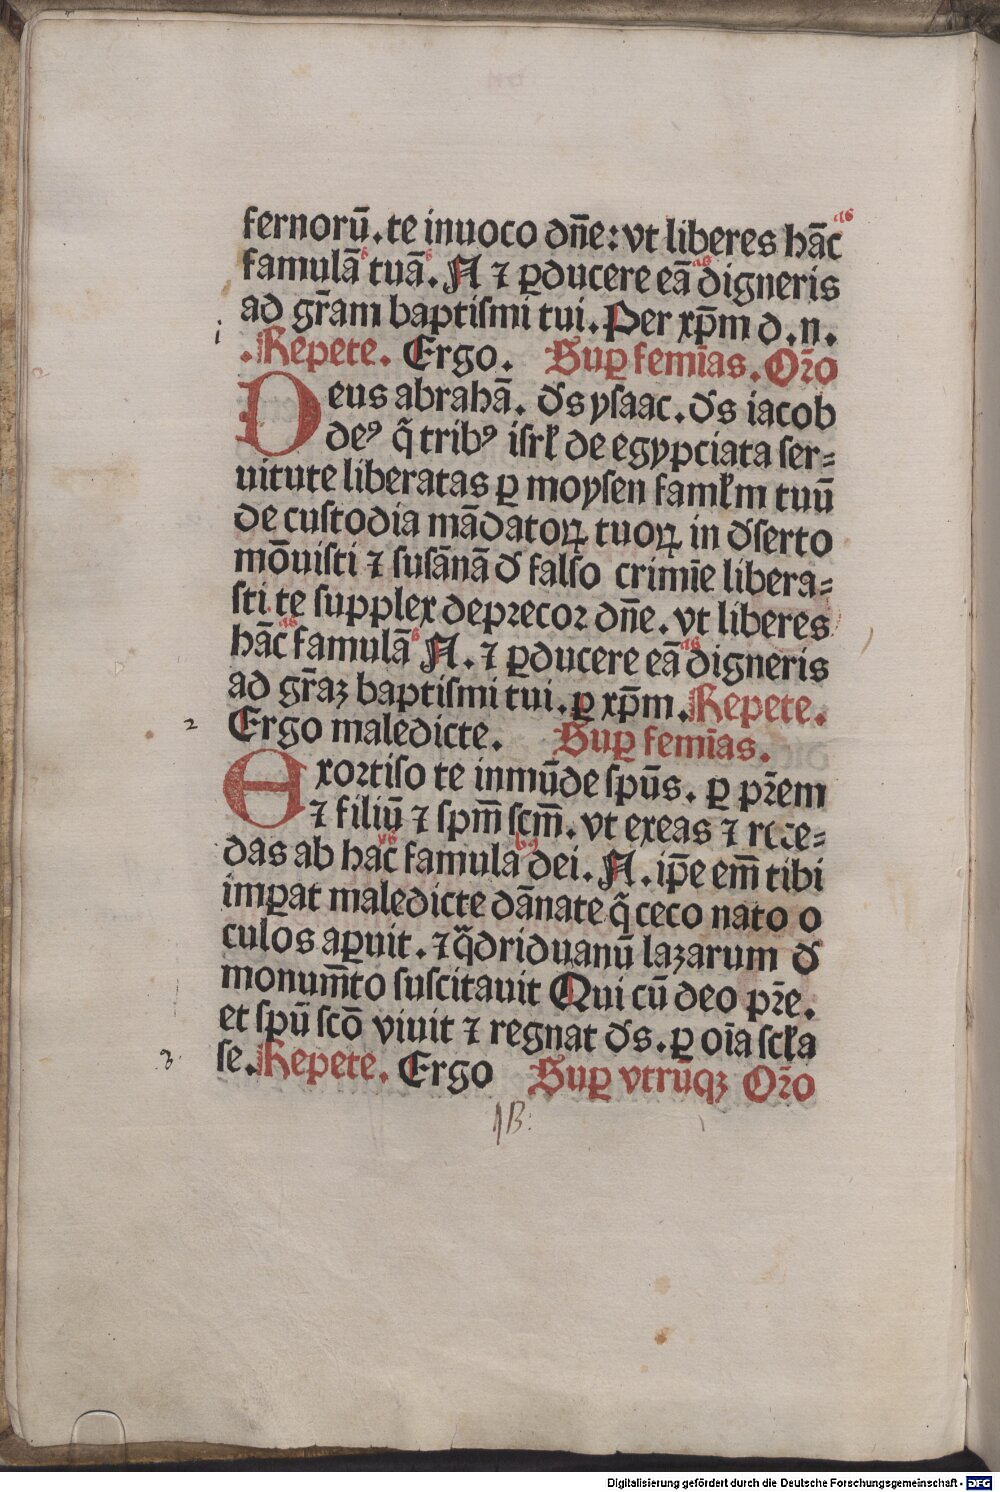 fernorū. te inuoco dn̄e: vt liberes hāc as
famulā s tuā s. N ⁊ ꝑducere eā as digneris
ad gr̄am baptismi tui. Per xp̄m d. n.
i
.Repete. Ergo. Suꝑ femīas. Or̄o
Deus abrahā. ds ysaac. ds iacob
deꝰ q̄ tribꝰ isrl de egypciata ser-
uitute liberatas ꝑ moysen famlm tuū
de custodia mādatoꝝ tuoꝝ in dserto
mōuisti ⁊ susānā d falso crimīe libera-
sti te supplex deprecor dn̄e. vt liberes
hāc as famulā s N. ⁊ ꝑducere eā as digneris
ad gr̄aꝫ baptismi tui. ꝑ xp̄m. Repete.
2
Ergo maledicte. Suꝑ femīas.
Exortiso te inmūde spūs. ꝑ pr̄em
⁊ filiū ⁊ spm̄ scm̄. vt exeas ⁊ rece-
das ab hac famula dei. N. ip̄e em̄ tibi
imꝑat maledicte dānate q̄ ceco nato o
culos aꝑuit. ⁊ qdriduanū lazarum d
monum̄to suscitauit Qui cū deo pr̄e.
et spū scō viuit ⁊ regnat ds. ꝑ oīa scla
3
se. Repete. Ergo Suꝑ vtrūqꝫ Or̄o
Digitalisierung gefördert durch die Deutsche Forschungsgemeinschaft - DFG